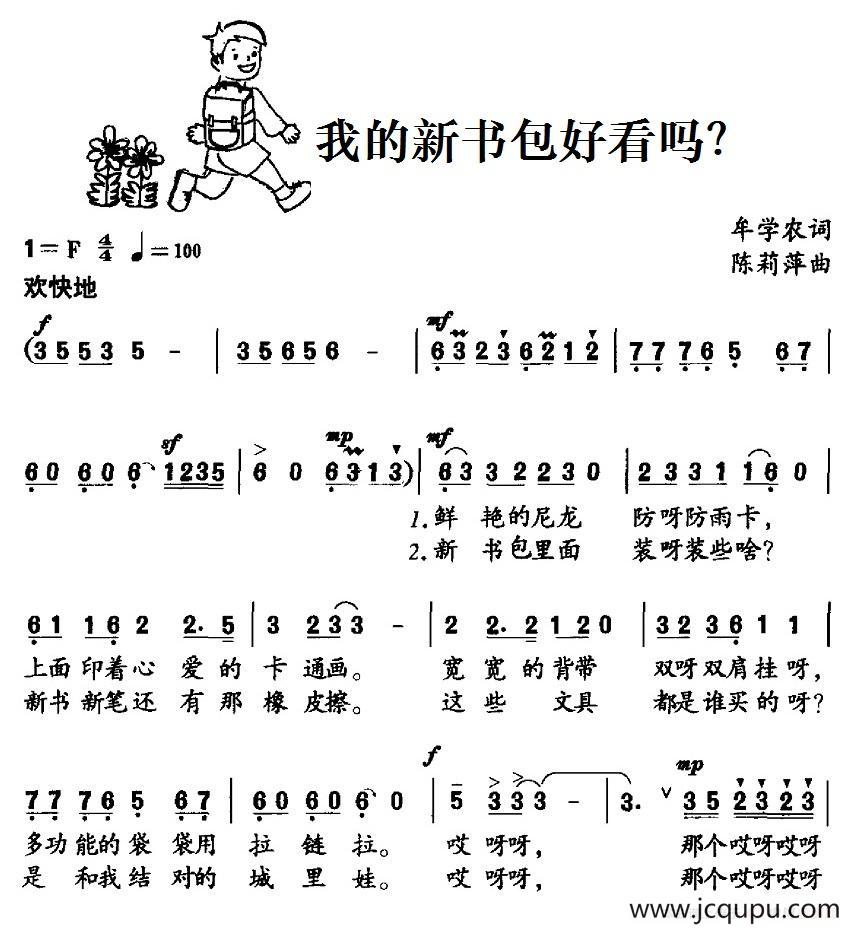 我的新书包好看吗?
1=F 4/4 ♩=100
牟学农词
陈莉萍曲
欢快地
f mf
(3 5 5 3 5 - | 3 5 6 5 6 - | 6 3 2 3 6 2 1 2 | 7 7 7 6 5 6 7 |
sf mp mf
6 0 6 0 6 1 2 3 5 | 6 0 6 3 1 3) | 6 3 3 2 2 3 0 | 2 3 3 1 1 6 0 |
1.鲜 艳的尼龙 防呀防雨卡,
2.新 书包里面 装呀装些啥?
6 1 1 6 2 2. 5 | 3 2 3 3 - | 2 2. 2 1 2 0 | 3 2 3 6 1 1 |
上面 印着心 爱的卡 通画。 宽 宽的背带 双呀双肩挂呀,
新书 新笔还 有那橡 皮擦。 这 些 文具 都是谁买的呀?
f mp
7 7 7 6 5 6 7 | 6 0 6 0 6 0 | 5 3 3 3 - | 3. ∨ 3 5 2 3 2 3 |
多功能的袋 袋用 拉 链 拉。 哎 呀呀, 那个哎呀哎呀
是 和我结 对的 城 里 娃。 哎 呀呀, 那个哎呀哎呀
www.jcqupu.com